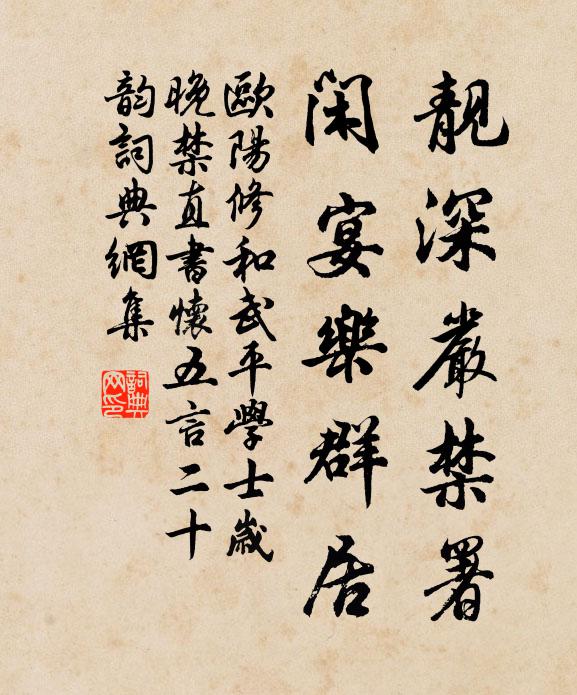 靚深嚴禁署
閑宴樂群居
歐陽修和武平學士歲
晚禁直書懷五言二十
韵詞典網集
詞典網印